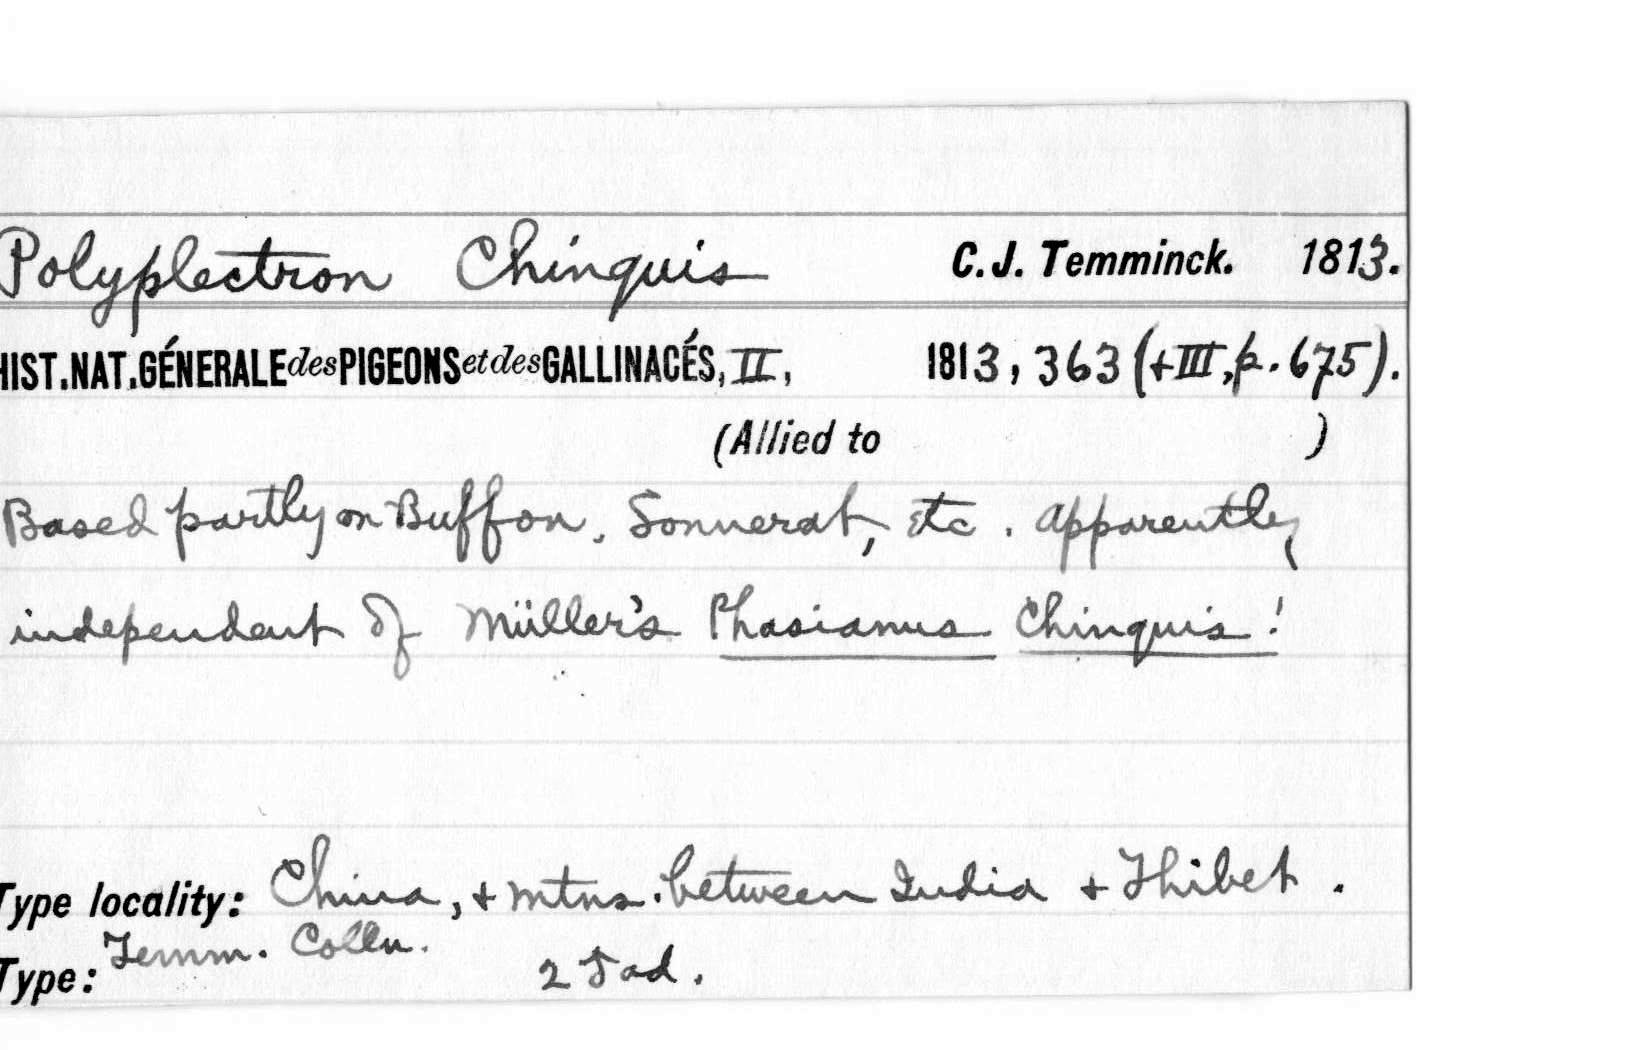 Polyplectron Chinquis C.J. Temminck. 1813.
HIST.NAT.GÉNERALE des PIGEONS et des GALLINACÉS, II, 1813, 363 (+III, p. 675).
(Allied to )
Based partly on Buffon, Sonnerat, etc. Apparently
independent of Müller's Phasianus Chinquis!
Type locality: China, + mtns. between India + Thibet.
Temm. Colln.
Type: 2 ad.